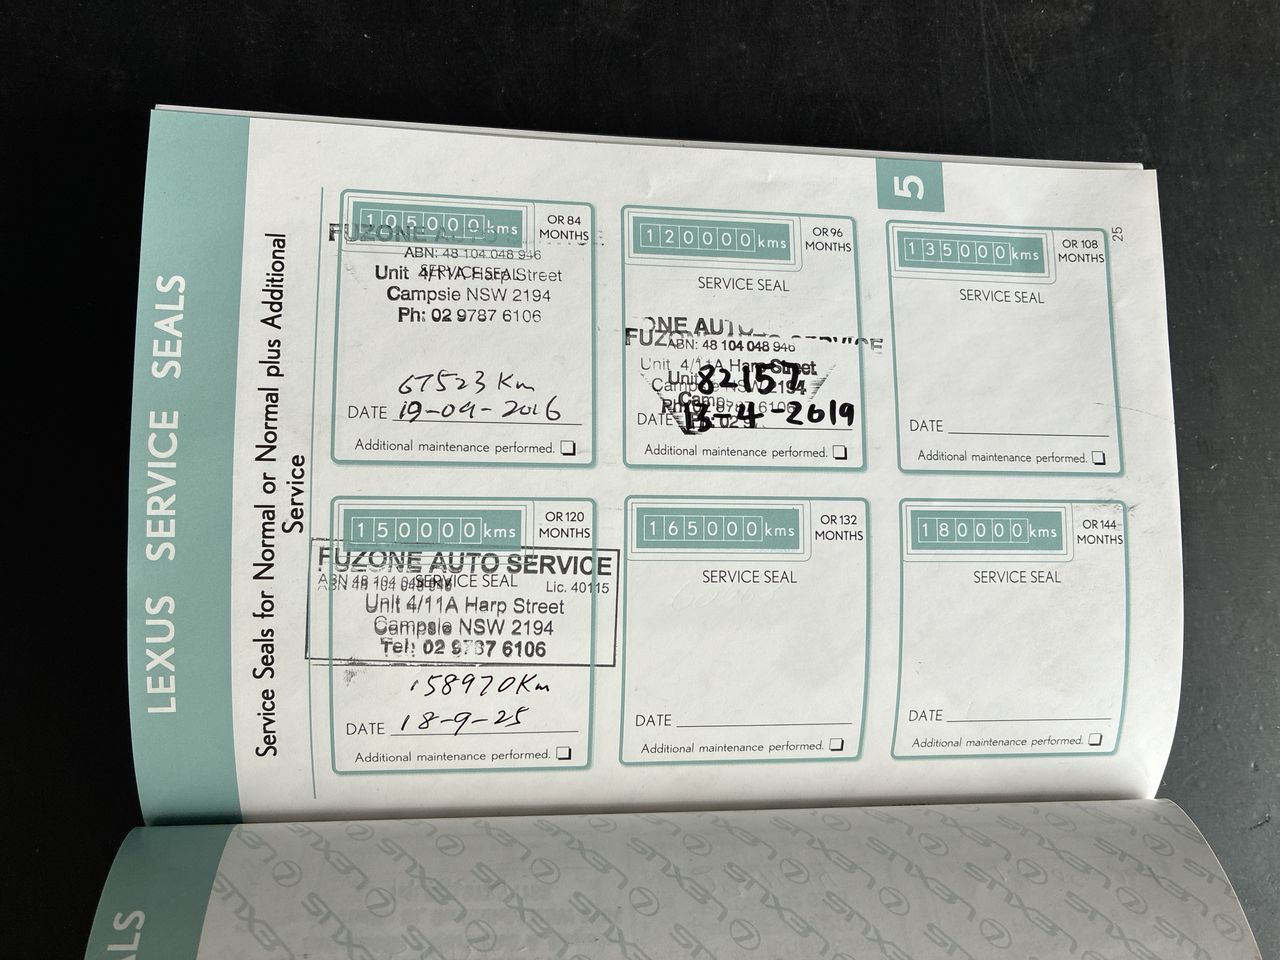 LEXUS SERVICE SEALS
Service Seals for Normal or Normal plus Additional
Service
5
25
105000kms
OR 84
MONTHS
FUZONE AUTO
ABN: 48 104 048 946
SERVICE SEAL
Unit 4/11A Harp Street
Campsie NSW 2194
Ph: 02 9787 6106
67523 Km
DATE 19-04-2016
Additional maintenance performed.
120000kms
OR 96
MONTHS
SERVICE SEAL
FUZONE AUTO SERVICE
ABN: 48 104 048 946
Unit 4/11A Harp Street
Campsie NSW 2194
82157
DATE 13-4-2019
Additional maintenance performed.
135000kms
OR 108
MONTHS
SERVICE SEAL
DATE
Additional maintenance performed.
150000kms
OR 120
MONTHS
FUZONE AUTO SERVICE
SERVICE SEAL
ABN 48 104 048 946 Lic. 40115
Unit 4/11A Harp Street
Campsie NSW 2194
Tel: 02 9787 6106
158970Km
DATE 18-9-25
Additional maintenance performed.
165000kms
OR 132
MONTHS
SERVICE SEAL
DATE
Additional maintenance performed.
180000kms
OR 144
MONTHS
SERVICE SEAL
DATE
Additional maintenance performed.
ALS
LEXUS